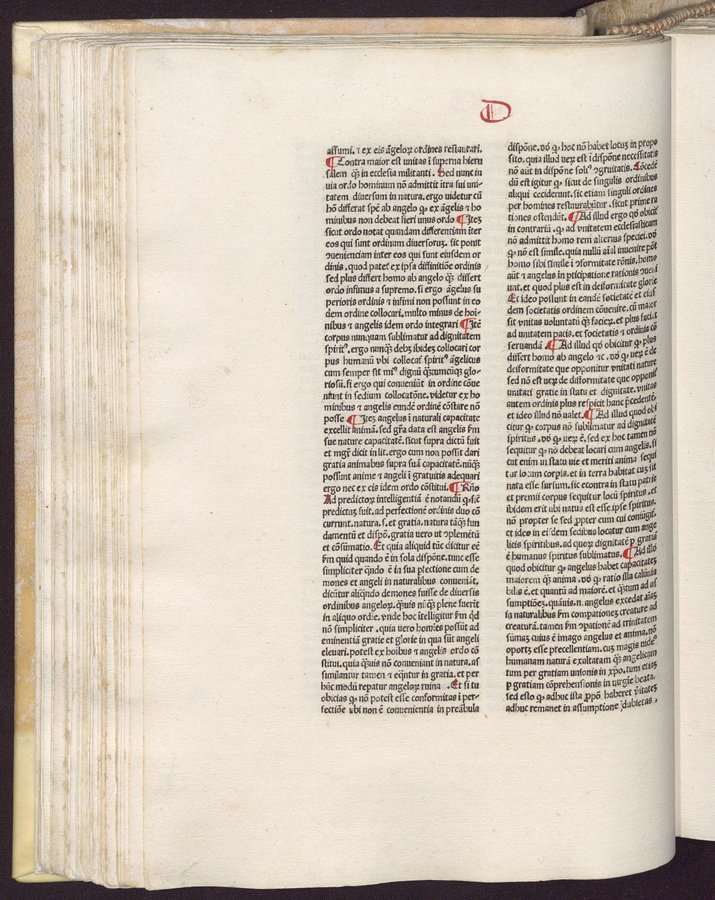 D
assumi. ⁊ ex eis āgeloꝝ ordines restaurari.
¶ Contra maior est unitas ī superna hieru
salem ꝙ̄ in ecclesia militanti. Sed nunc in
uia ordo hominum nō admittit itra sui uni
tatem diuersum in natura. ergo uidetur cū
hō differat spē ab angelo ꝙ ex āgelis ⁊ ho
minibus non debeat fieri unus ordo ¶ Itē
sicut ordo notat quandam differentiam iter
eos qui sunt ordinum diuersoruꝫ. sic ponit
ꝯuenienciam inter eos qui sunt eiusdem or
dinis. quod patet ex ipsa diffinitiōe ordinis
sed plus differt homo ab angelo ꝙ̄ differt
ordo infimus a supremo. si ergo āgelus su
perioris ordinis ⁊ infimi non possunt in eo
dem ordine collocari. multo minus de hoi-
nibus ⁊ angelis idem ordo integrari ¶ Itē
corpus nunquam sublimatur ad dignitatem
spirit⁹. ergo nunꝙ̄ debꝫ ibideꝫ collocari cor
pus humanū vbi collocaꝶ spirit⁹ āgelicus
cum semper sit mi⁹ dignū ꝙ̄zcumqꝫ glo-
riosū. si ergo qui conueniūt in ordine cōue
niunt in sedium collocatōne. videtur ex ho
minibus ⁊ angelis eundē ordinē cōstare nō
posse ¶ Iteꝫ angelus ī naturali capacitate
excellit animā. sed gr̄a data est angelis ẜm
sue nature capacitatē. sicut supra dictū fuit
et mgr̄ dicit in lit. ergo cum non possit dari
gratia animabus supra suā capacitatē. nūqꝫ
possunt anime ⁊ angeli ī gratuitis adequari
ergo nec ex eis idem ordo cōstitui. ¶ Rn̄o
Ad predictoꝝ intelligentiā ē notandū ꝙ sic̄
predictuꝫ fuit. ad perfectionē ordinis duo cō
currunt. natura. s. et gratia. natura tāꝙ̄ fun
damentū et dispō. gratia uero ut ꝯplemētū
et cōsūmatio. Et quia aliquid tūc dicitur eē
ẜm quid quando ē in sola dispōne. tunc esse
simpliciter qn̄do ē īa sua ꝑfectione cum de
mones et angeli in naturalibus conueniāt.
dicūtur aliqn̄do demones fuisse de diuersis
ordinibus angeloꝝ. ꝙ̄uis nūꝙ̄ plene fuerīt
in aliquo ordīe. vnde hoc ītelligitur ẜm qd̄
nō simpliciter. quia vero hoīes possūt ad
eminentiā gratie et glorie in qua sūt angeli
eleuari. potest ex hoibus ⁊ angelis ordo cō
stitui. quia ꝙ̄uis nō conueniant in natura. as
similantur tamen ⁊ eq̄ntur in gratia. et per
hūc modū repatur angeloꝝ ruina. Et si tu
obicias ꝙ nō potest esse conformitas ī per-
fectiōe vbi non ē conuenientia in preābula
dispōne. dō̄ ꝙ hoc nō habet locuꝫ in propo
sito. quia illud ueꝝ est ī dispōne necessitatis
nō aūt in dispōne soli⁹ ꝯgruitatis. Cōcedē
dū est igitur ꝙ sicut de singulis ordinibus
aliqui ceciderunt. sic etiam singuli ordines
per homines restaurabūtur. sicut prime ra
tiones ostendūt. ¶ Ad illud ergo qd̄ obicit̄
in contrariū. ꝙ ad vnitatem ecclesiasticam
nō admittit homo rem alterius speciei. dō̄
ꝙ nō est simile. quia nullū aīal inuenire pōt
homo sibi simile ī ꝯformitate rōnis. homo
aūt ⁊ angelus in ꝑticipatiōe rationis ꝯueni
unt. et quod plus est in deiformitate glorie
Et ideo possunt in eandē societatē et eius
dem societatis ordinem cōuenire. cū maior
sit vnitas voluntatū ꝙ̄ facieꝝ. et plus faciat
ad unitatem pacis. et societatis ⁊ ordinis cō
seruandā ¶ Ad illud qd̄ obicitur ꝙ plus
differt homo ab angelo ⁊c. dō̄ ꝙ ueꝝ ē de
deiformitate que opponitur vnitati nature
sed nō est ueꝝ de difformitate que opponit̄
unitati gratie in statu et dignitate. vnitas
autem ordinis plus respicit hanc ꝑcedentē.
et ideo illud nō ualet. ¶ Ad illud quod obi
citur ꝙ corpus nō sublimatur ad dignitatē
spiritus. dō̄ ꝙ ueꝝ ē. sed ex hoc tamen nō
sequitur ꝙ nō debeat locari cum angelis. si
cut enim in statu uie et meriti anima sequi
tur locum corpis. et in terra habitat cuꝫ sit
nata esse sursum. sic contra in statu patrie
et premii corpus sequitur locū spiritus. et
ibidem erit ubi natus est esse ipse spiritus.
nō propter se sed ꝓpter cum cui coniūgit̄.
et ideo in eisdem sedibus locatur cum ange
licis spiritibus. ad quoꝝ dignitatē ꝑ gratiā
ē humanus spiritus sublimatus. ¶ Ad illd̄
quod obicitur ꝙ angelus habet capacitatē
maiorem ꝙ̄ anima. dō̄ ꝙ ratio illa calūnia
bilis ē. et quantū ad maiorē. et ꝙ̄tum ad as
sumptiōeꝫ. quāuis. n. angelus excedat aīas
in naturalibus ẜm compationeꝫ creature ad
creaturā. tamen ẜm ꝯpationē ad trinitatem
sūmaꝫ cuius ē imago angelus et anima. nō
oportꝫ esse p̄cellentiam. cuꝫ magis uideam⁹
humanam naturā exaltatam ꝙ̄ angelicam
tum per gratiam unionis in xp̄o. tum etiaꝫ
ꝑ gratiam cōprehensionis in uirgīe beata.
sed esto ꝙ adhuc ista ꝓpō haberet v̄itatē
adhuc remanet in assumptione ꝺubietas.